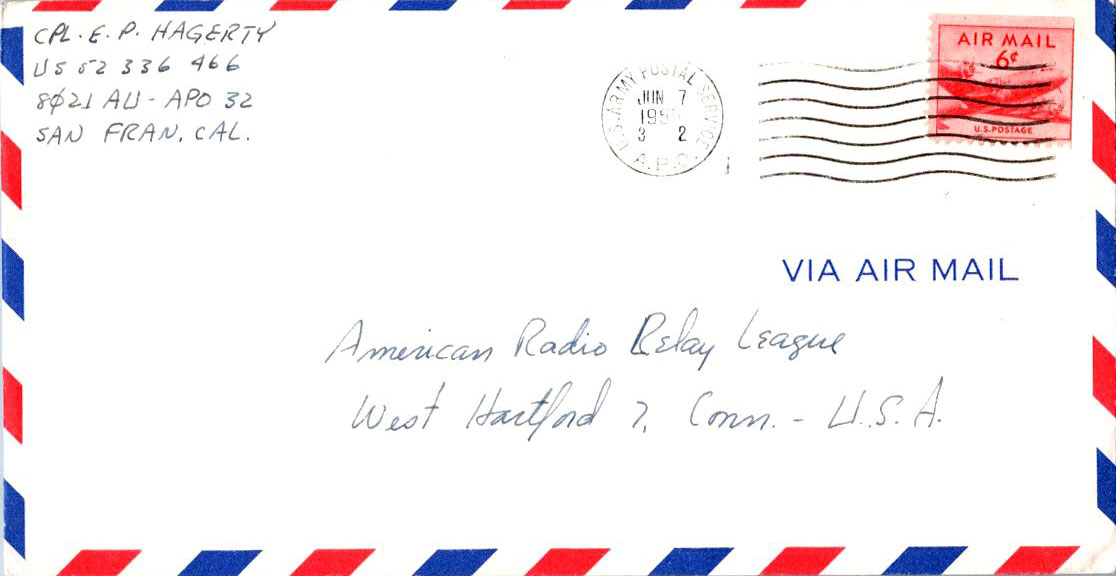 CPL. E. P. HAGERTY
US 52 336 466
8φ21 AU - APO 32
SAN FRAN. CAL.
U.S. ARMY POSTAL SERVICE
JUN 7
3 2
A.P.O.
AIR MAIL
6¢
U.S. POSTAGE
VIA AIR MAIL
American Radio Relay League
West Hartford 7, Conn. - U.S.A.